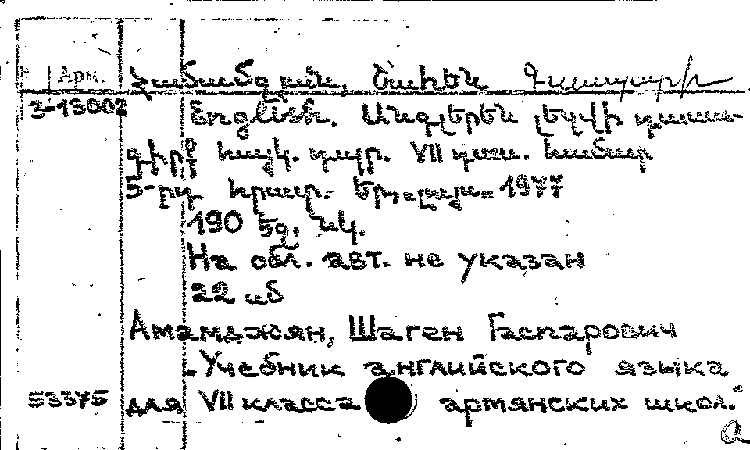 Арм. Համամջյան, Շահեն Գասպարի
3-13002 English. Անգլերեն լեզվի դասա-
գիրք հայկ. դպր. VII դաս. համար
5-րդ հրատ. Եր., 1977
190 էջ, նկ.
На обл. авт. не указан
22 կ
Амамджян, Шаген Гаспарович
Учебник английского языка
53375 для VII класса армянских школ.